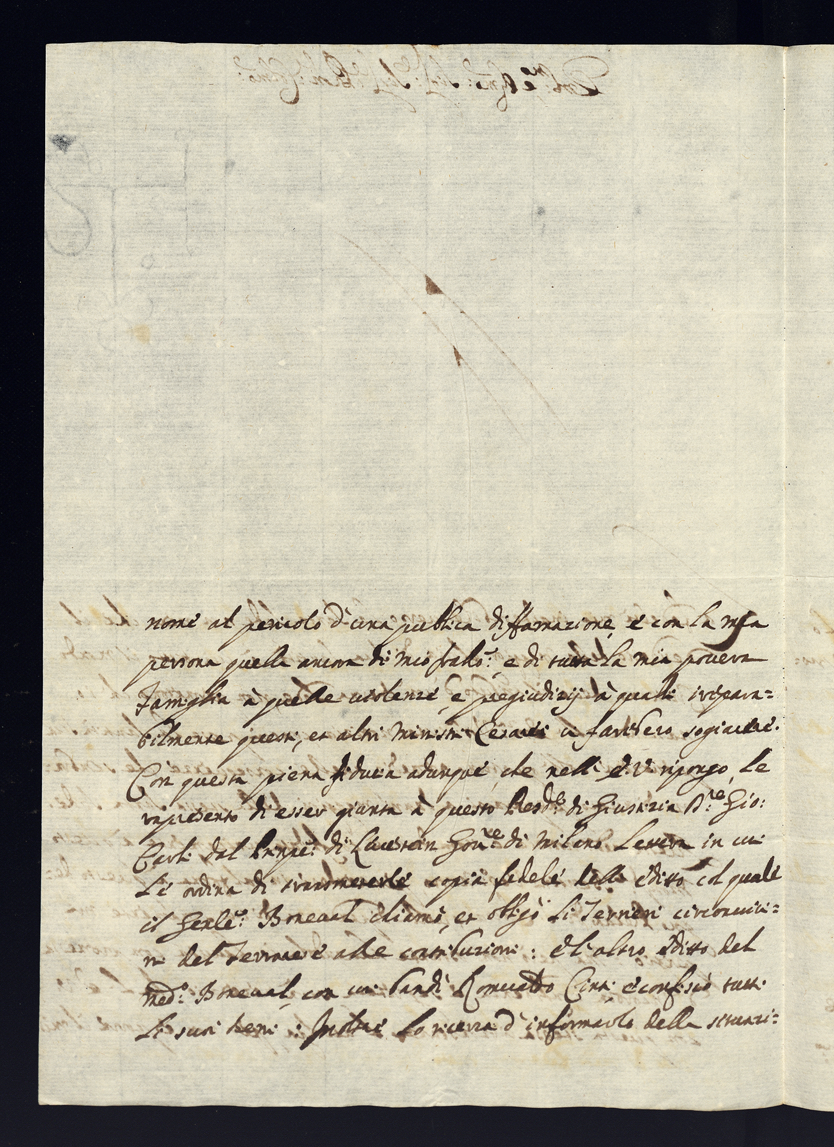 nome al pericolo d'una publica diffamazione, e con la mia
persona quella ancora di mio frallo: e di tutta la mia povera
Famiglia à quelle violenze, e pregiudizij à quali irrepara=
bilmente questi, et altri Ministri Cesarei ci farebbero sogiacere.
Con questa piena fiducia adunque, che nell' E. V. ripongo, Le
rapresento di esser giunta à questo Pod:e di Giustizia D:re Gio:
Carli dal Prnpe: di Gov:re di Milano Lettera in cui
Li ordina di trasmeterle copia fedele dello editto col quale
il Genle: Boneval chiamò, et obligò Li Terrieri circonvici=
ni del Ferrarese alle contribuzioni: E l'altro editto del
med:o Boneval, con cui bandì Romualdo Conti, e confiscò tutti
Li suoi beni: Inoltre Lo ricerca d'informarlo della situazi=